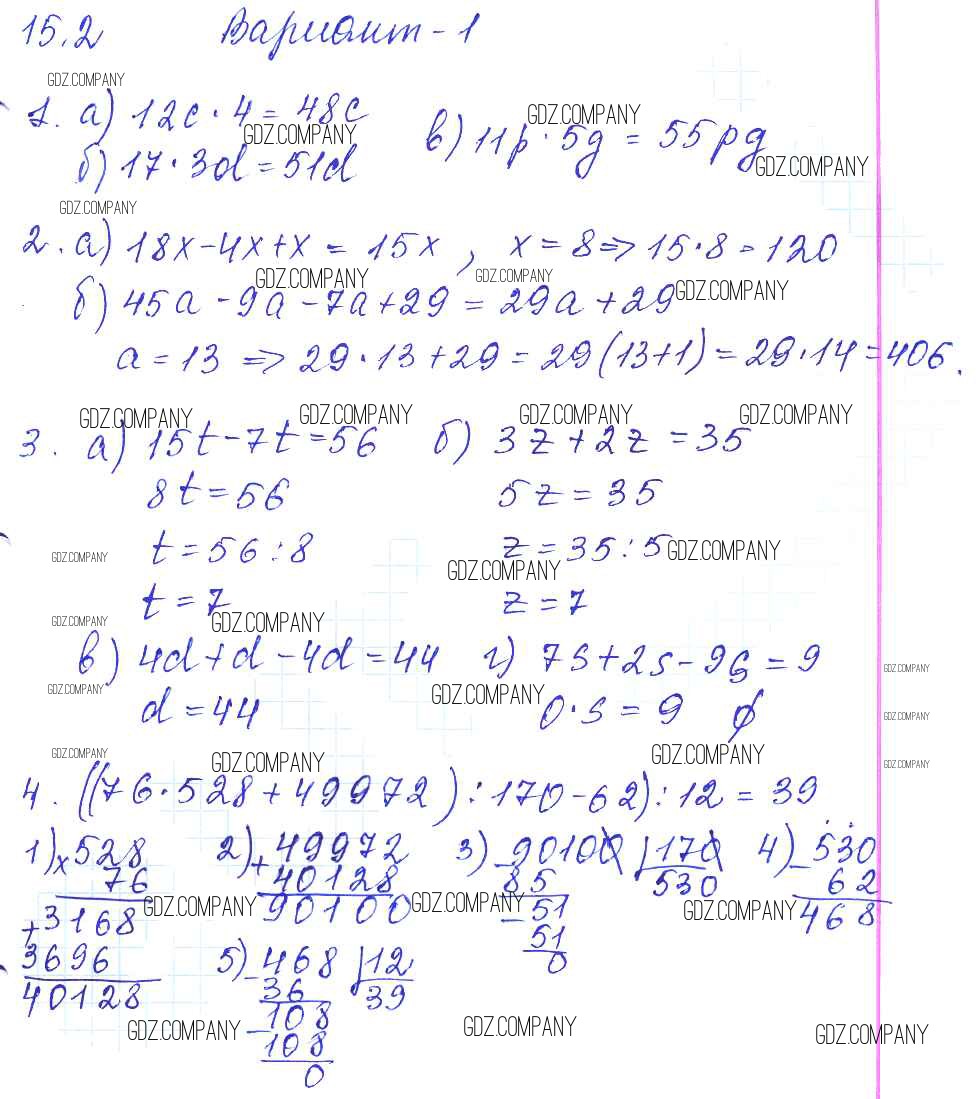 15.2 Вариант-1
GDZ.COMPANY
1. а) 12c·4=48c
GDZ.COMPANY
GDZ.COMPANY
б) 17·3d=51d
в) 11p·5g=55pg
GDZ.COMPANY
GDZ.COMPANY
2. а) 18x-4x+x=15x, x=8=>15·8=120
GDZ.COMPANY GDZ.COMPANY GDZ.COMPANY
б) 45a-9a-7a+29=29a+29
a=13 => 29·13+29=29(13+1)=29·14=406.
GDZ.COMPANY GDZ.COMPANY GDZ.COMPANY GDZ.COMPANY
3. а) 15t-7t=56 б) 3z+2z=35
8t=56 5z=35
GDZ.COMPANY t=56:8 z=35:5 GDZ.COMPANY
GDZ.COMPANY
t=7 z=7
GDZ.COMPANY GDZ.COMPANY
в) 4d+d-4d=44 г) 7s+2s-9s=9
GDZ.COMPANY
GDZ.COMPANY GDZ.COMPANY
d=44 0·s=9 ∅
GDZ.COMPANY
GDZ.COMPANY GDZ.COMPANY GDZ.COMPANY GDZ.COMPANY
4. ((76·528+49972):170-62):12=39
1) ×528 2) +49972 3) -90100 |170 4) -530
76 40128 85 530 62
+3168 GDZ.COMPANY 90100 GDZ.COMPANY -51 GDZ.COMPANY 468
51
3696 5) -468 |12 0
40128 36 39
GDZ.COMPANY -108 GDZ.COMPANY GDZ.COMPANY
108
0